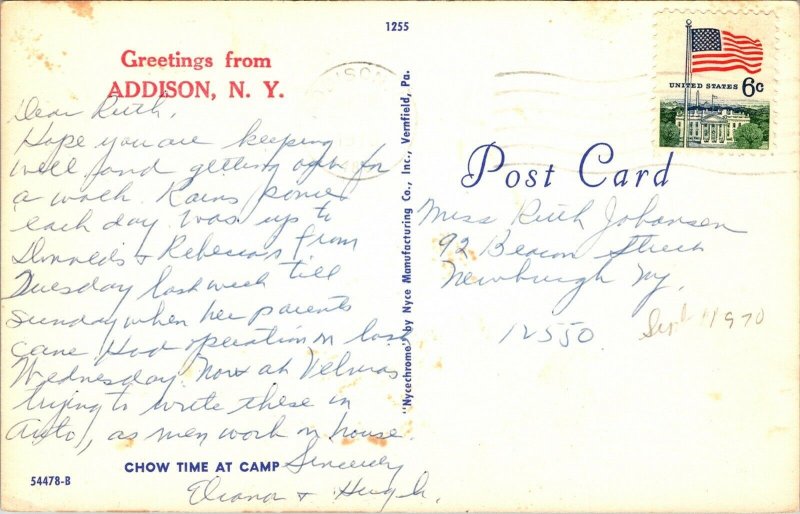 1255
Greetings from
ADDISON, N. Y.
Dear Ruth,
Hope you are keeping
well and getting out for
a walk. Rains some
each day. Was up to
Donald's & Rebecca's from
Tuesday last week till
Sunday when her parents
came. Had operation on last
Wednesday. Now at Velmas
trying to write these in
Auto, as men work on house.
Sincerely
Eleanor & Hugh.
CHOW TIME AT CAMP
54478-B
"Nycechrome" by Nyce Manufacturing Co., Inc., Vernfield, Pa.
UNITED STATES 6c
Post Card
Miss Ruth Johansen
92 Beacon Street
Newburgh Ny,
12550
Sept 1970